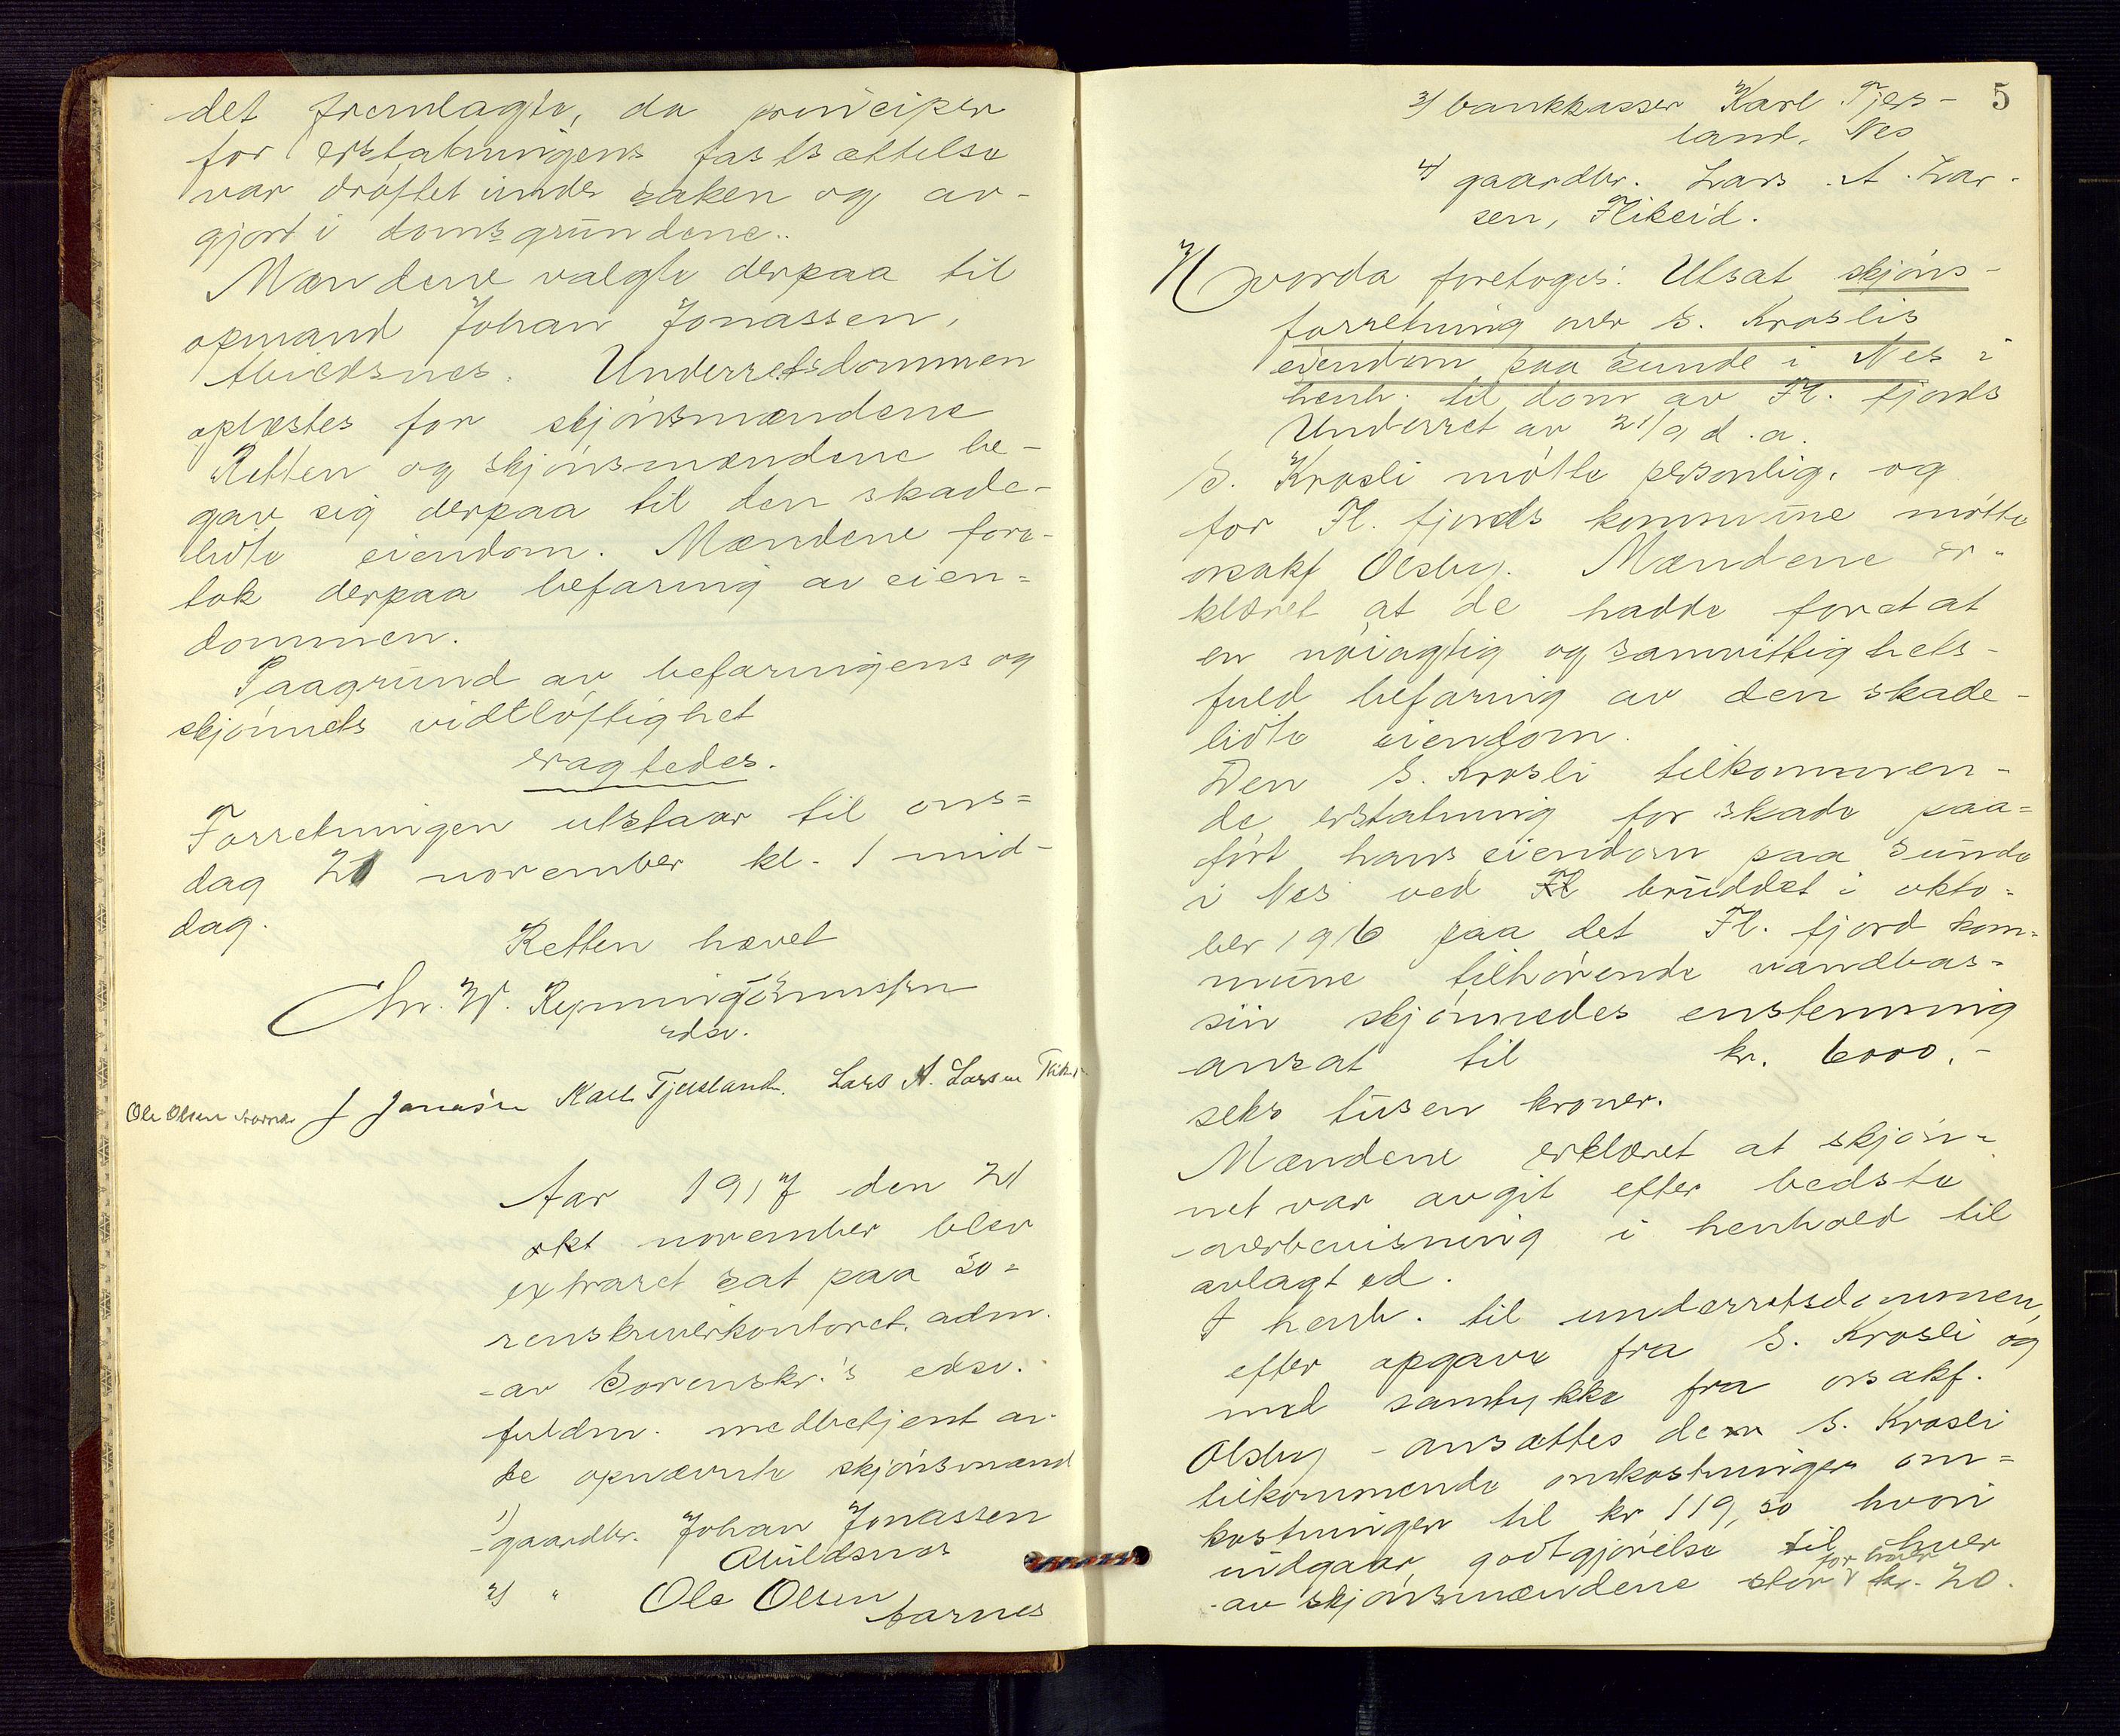 det fremlagte, da principer
for erstatningens fastsættelse
var drøftet under saken og av-
gjort i domsgrundene.
Mændene valgte derpaa til
opmand Johan Jonassen,
Abildsnes. Underretsdommen
oplæstes for skjønsmændene
Retten og skjønsmændene be-
gav sig derpaa til den skade-
lidte eiendom. Mændene fore-
tok derpaa befaring av eien-
dommen.
Paagrund av befaringens og
skjønnets vidtløftighet
eragtedes.
Forretningen utstaar til ons-
dag 21 november kl. 1 mid-
dag.
Retten hævet
Chr. W.
edsv.
J Jonassen Karl Tjersland. Lars A. Larsen
Ole Olsen
Aar 1917 den 21
okt november blev
extraret sat paa so-
renskriverkontoret, adm.
av Sorenskr.'s edsv.
fuldm. medbetjent av
de opnævnte skjønsmænd
1) gaardbr. Johan Jonassen
Abildsnes
2) " Ole Olsen
Aarnes
5
3) bankkasser Karl Tjers-
land, Nes
4) gaardbr. Lars A. Lar-
sen, Flikeid.
Hvorda foretoges: Utsat skjøns-
forretning over S. Kroslis
eiendom paa Sunde i Nes i
henh. til dom av Fl. fjords
Underret av 21/9 d.a.
S. Krosli møtte personlig, og
for Fl. fjords kommune møtte
orsakf Olsby. Mændene er-
klæret at de hadde foretat
en nøiagtig og samvittighets-
fuld befaring av den skade-
lidte eiendom.
Den S. Krosli tilkommen-
de erstatning for skade paa-
ført hans eiendom paa Sunde
i Nes ved Fl bruddet i okto-
ber 1916 paa det Fl. fjord kom-
mune tilhørende vandbas-
sin skjønnedes enstemmig
ansat til kr. 6000.-
seks tusen kroner.
Mændene erklæret at skjøn-
net var avgit efter bedste
overbevisning i henhold til
avlagt ed.
I henh. til underretsdommen,
efter opgave fra S. Krosli og
med samtykke fra orsakf.
Olsby ansættes de S. Krosli
tilkommende omkostninger om-
kostninger til kr 119,50 hvori
indgaar godtgjørelse til hver
av skjønsmændene stor for hver kr. 20.